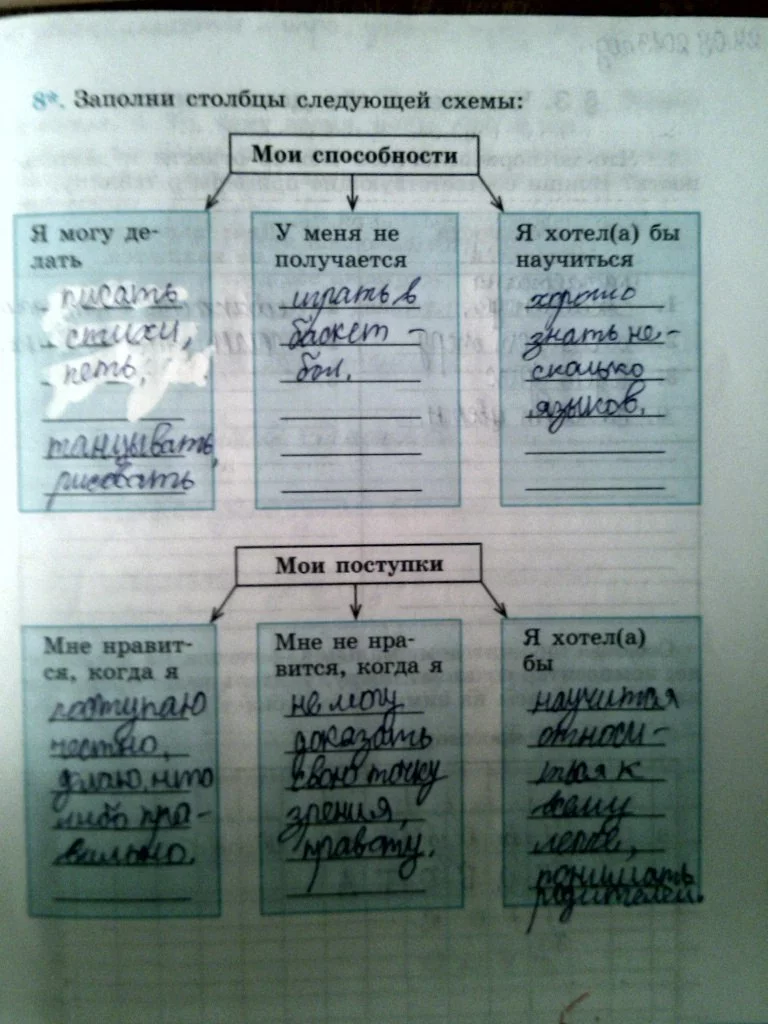 8*. Заполни столбцы следующей схемы:
Мои способности
Я могу де-
лать
писать
стихи,
петь,
танцывать,
рисовать
У меня не
получается
играть в
баскет -
бол.
Я хотел(а) бы
научиться
хорошо
знать не-
сколько
языков.
Мои поступки
Мне нравит-
ся, когда я
поступаю
честно,
делаю, что
либо пра-
вильно.
Мне не нра-
вится, когда я
не могу
доказать
свою точку
зрения,
правоту.
Я хотел(а)
бы
научится
относи-
ться к
всему
легче,
понимать
родителей.